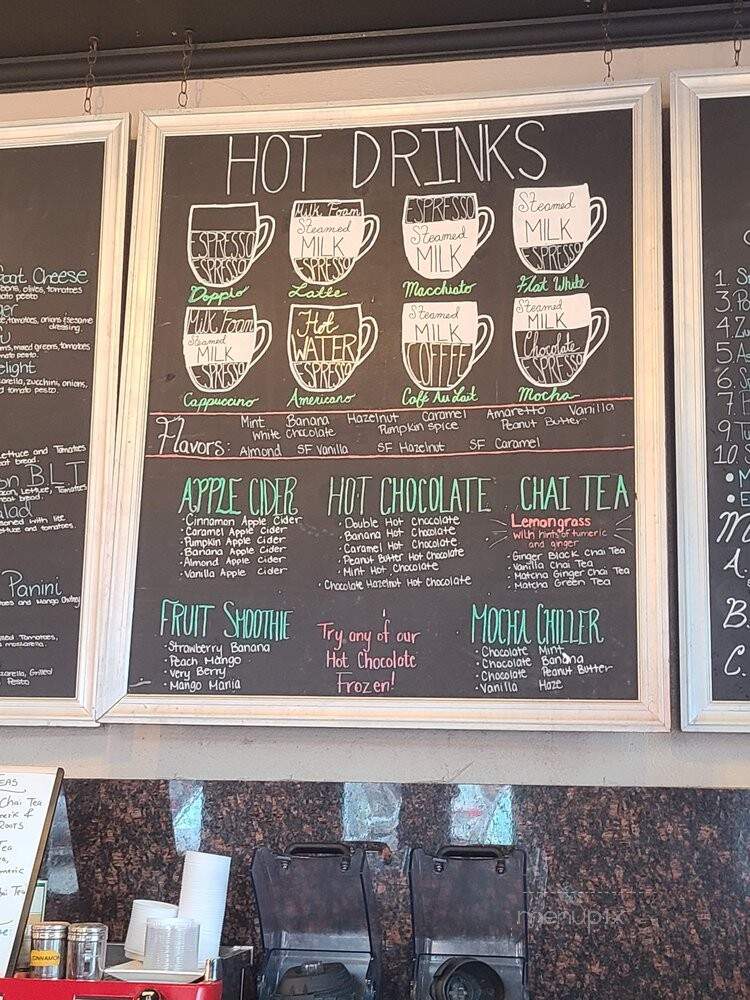 HOT DRINKS
ESPRESSO
ESPRESSO
Doppio
Milk Foam
Steamed
MILK
ESPRESSO
Latte
ESPRESSO
Steamed
MILK
Macchiato
Steamed
MILK
ESPRESSO
Flat White
Milk Foam
Steamed
MILK
ESPRESSO
Cappuccino
Hot
WATER
ESPRESSO
Americano
Steamed
MILK
COFFEE
Café Au Lait
Steamed
MILK
Chocolate
ESPRESSO
Mocha
Flavors:
Mint Banana Hazelnut Caramel Amaretto Vanilla
White Chocolate Pumpkin Spice Peanut Butter
Almond SF Vanilla SF Hazelnut SF Caramel
APPLE CIDER
· Cinnamon Apple Cider
· Caramel Apple Cider
· Pumpkin Apple Cider
· Banana Apple Cider
· Almond Apple Cider
· Vanilla Apple Cider
HOT CHOCOLATE
· Double Hot Chocolate
· Banana Hot Chocolate
· Caramel Hot Chocolate
· Peanut Butter Hot Chocolate
· Mint Hot Chocolate
· Chocolate Hazelnut Hot Chocolate
CHAI TEA
Lemongrass
with hints of tumeric
and ginger
· Ginger Black Chai Tea
· Vanilla Chai Tea
· Matcha Ginger Chai Tea
· Matcha Green Tea
FRUIT SMOOTHIE
· Strawberry Banana
· Peach Mango
· Very Berry
· Mango Mania
Try any of our
Hot Chocolate
Frozen!
MOCHA CHILLER
· Chocolate Mint
· Chocolate Banana
· Chocolate Peanut Butter
· Vanilla Haze
Goat Cheese
olives, tomatoes
tomato pesto
tomatoes, onions & sesame
dressing
mixed greens, tomatoes
tomato pesto.
zucchini, onions,
tomato pesto.
Lettuce and Tomatoes
BLT
Bacon, Lettuce, Tomatoes
bread.
Salad
and tomatoes.
Panini
Tomatoes and Mango Chutney
Tomatoes,
mozzarella.
Grilled
Pesto
1.
3.
4.
5.
6.
7.
9.
10.
A.
B.
C.
TEAS
Chai Tea
&
ROOTS
Tea
Chai Tea
CINNAMON
menupix